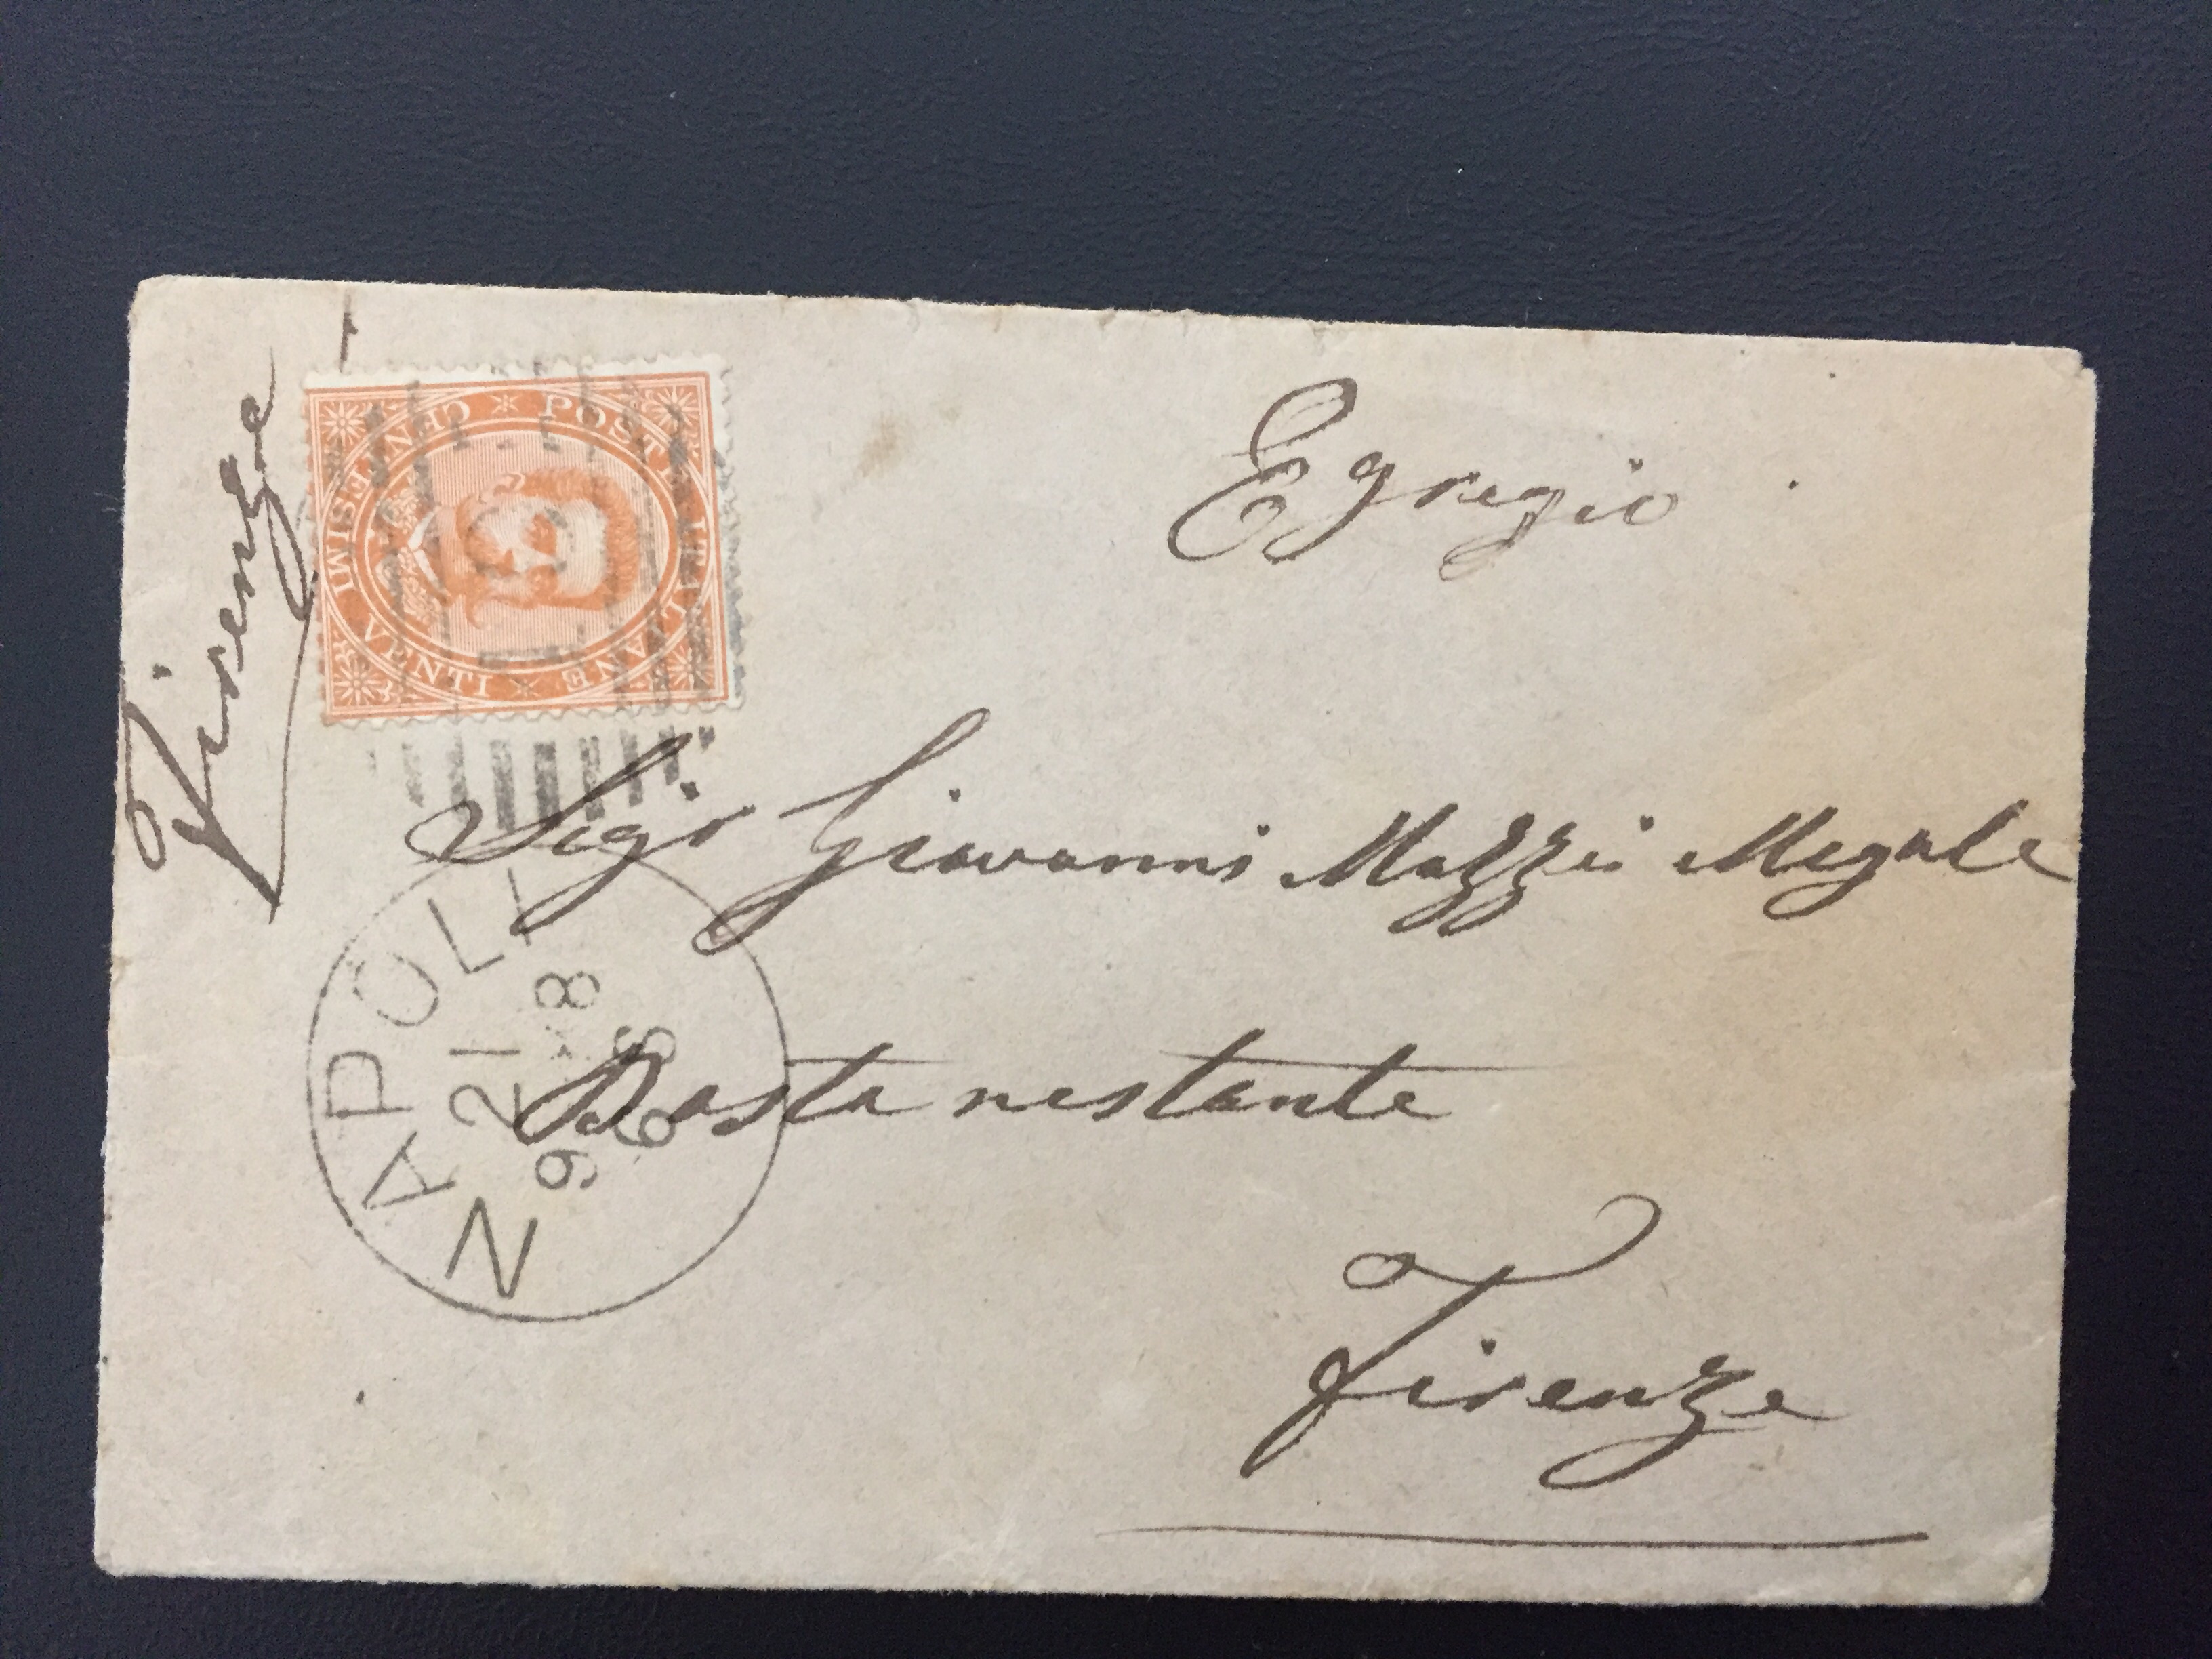 Firenze
POSTE ITALIANE
VENTI
CENTESIMI
Egregio
Sigr Giovanni Mazzei Megale
Posta restante
Firenze
NAPOLI
21
9 8